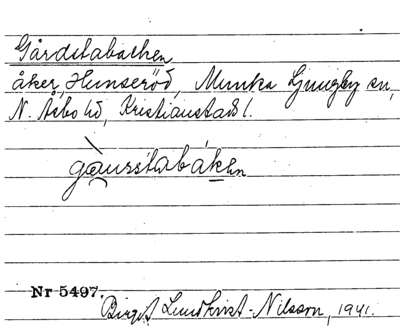 Gårdstabacken
åker, Hunseröd, Munka Ljungby sn,
N. Åsbo hd, Kristianstads l.
gånstabákən
Nr 5497.
Birgit Lundkvist-Nilsson, 1941.